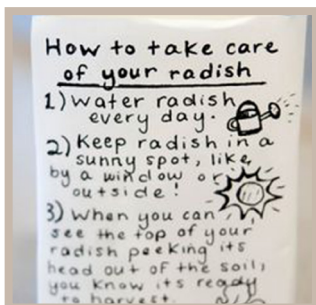 How to take care
of your radish
1) Water radish
every day.
2) Keep radish in a
sunny spot, like
by a window or
outside!
3) When you can
see the top of your
radish peeking its
head out of the soil,
you know its ready
to harvest.